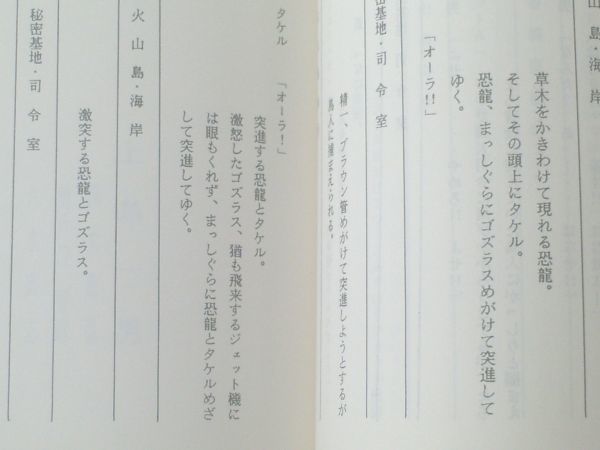 火山島・海岸
草木をかきわけて現れる恐龍。
そしてその頭上にタケル。
恐龍、まっしぐらにゴズラスめがけて突進して
ゆく。
「オーラ!!」
秘密基地・司令室
精一、ブラウン管めがけて突進しようとするが
鳥人に捕まえられる。
タケル 「オーラ!」
突進する恐龍とタケル。
激怒したゴズラス、猶も飛来するジェット機に
は眼もくれず、まっしぐらに恐龍とタケルめざ
して突進してゆく。
火山島・海岸
激突する恐龍とゴズラス。
秘密基地・司令室